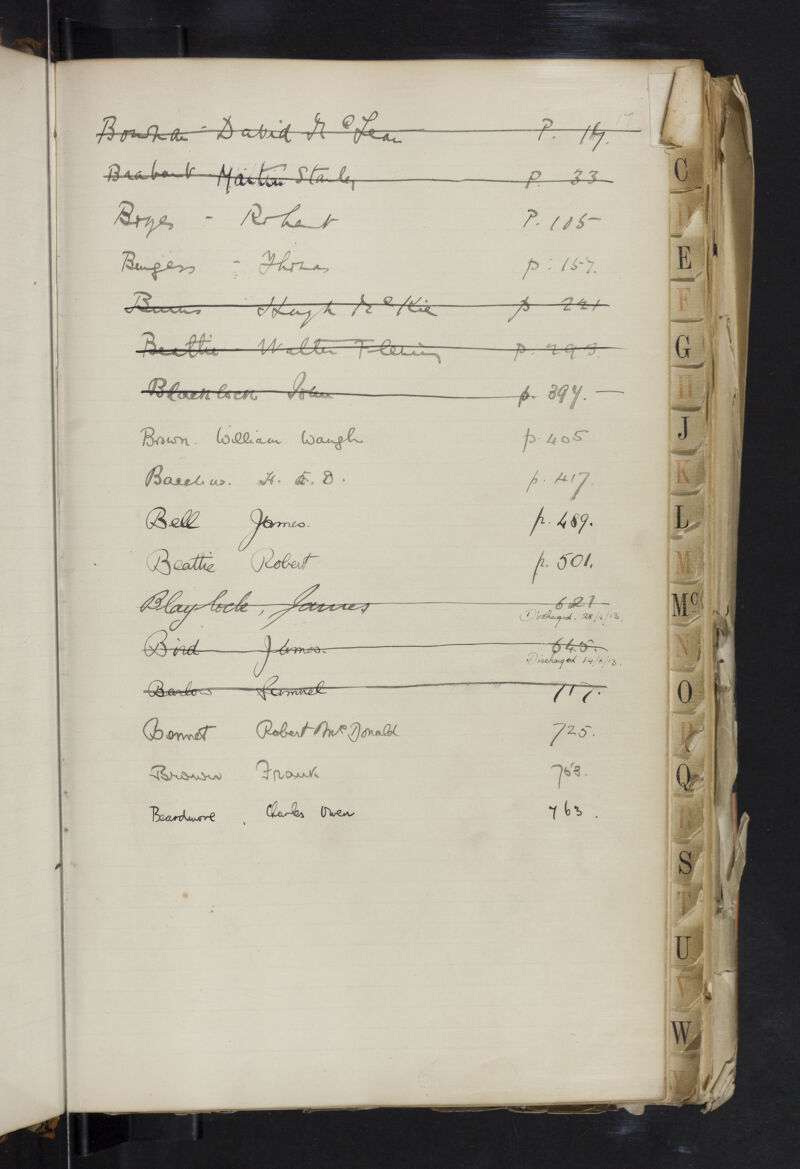 David McLean P. 17. 17
Brabant Martin Stanley p. 33
Boyes - Robert P. 105
Burgess - Thomas p. 157.
Burns Hugh McKie p 221
Beattie Walter Fleming p. 293
Blacklock John p. 397. —
Brown. William Waugh p. 405
Bacchus. H. E. D. p. 417.
Bell James. p. 489.
Beattie Robert p. 501.
Blaylock, James 621
Discharged. 28/6/13.
Bird James. 645.
Discharged 14/6/13.
Barlow Samuel 717.
Bennet Robert McDonald 725.
Brown Frank 753.
Beardmore, Charles Owen 763.
C
D
E
F
G
H
J
K
L
M
Mc
N
O
P
Q
R
S
T
U
V
W
Y